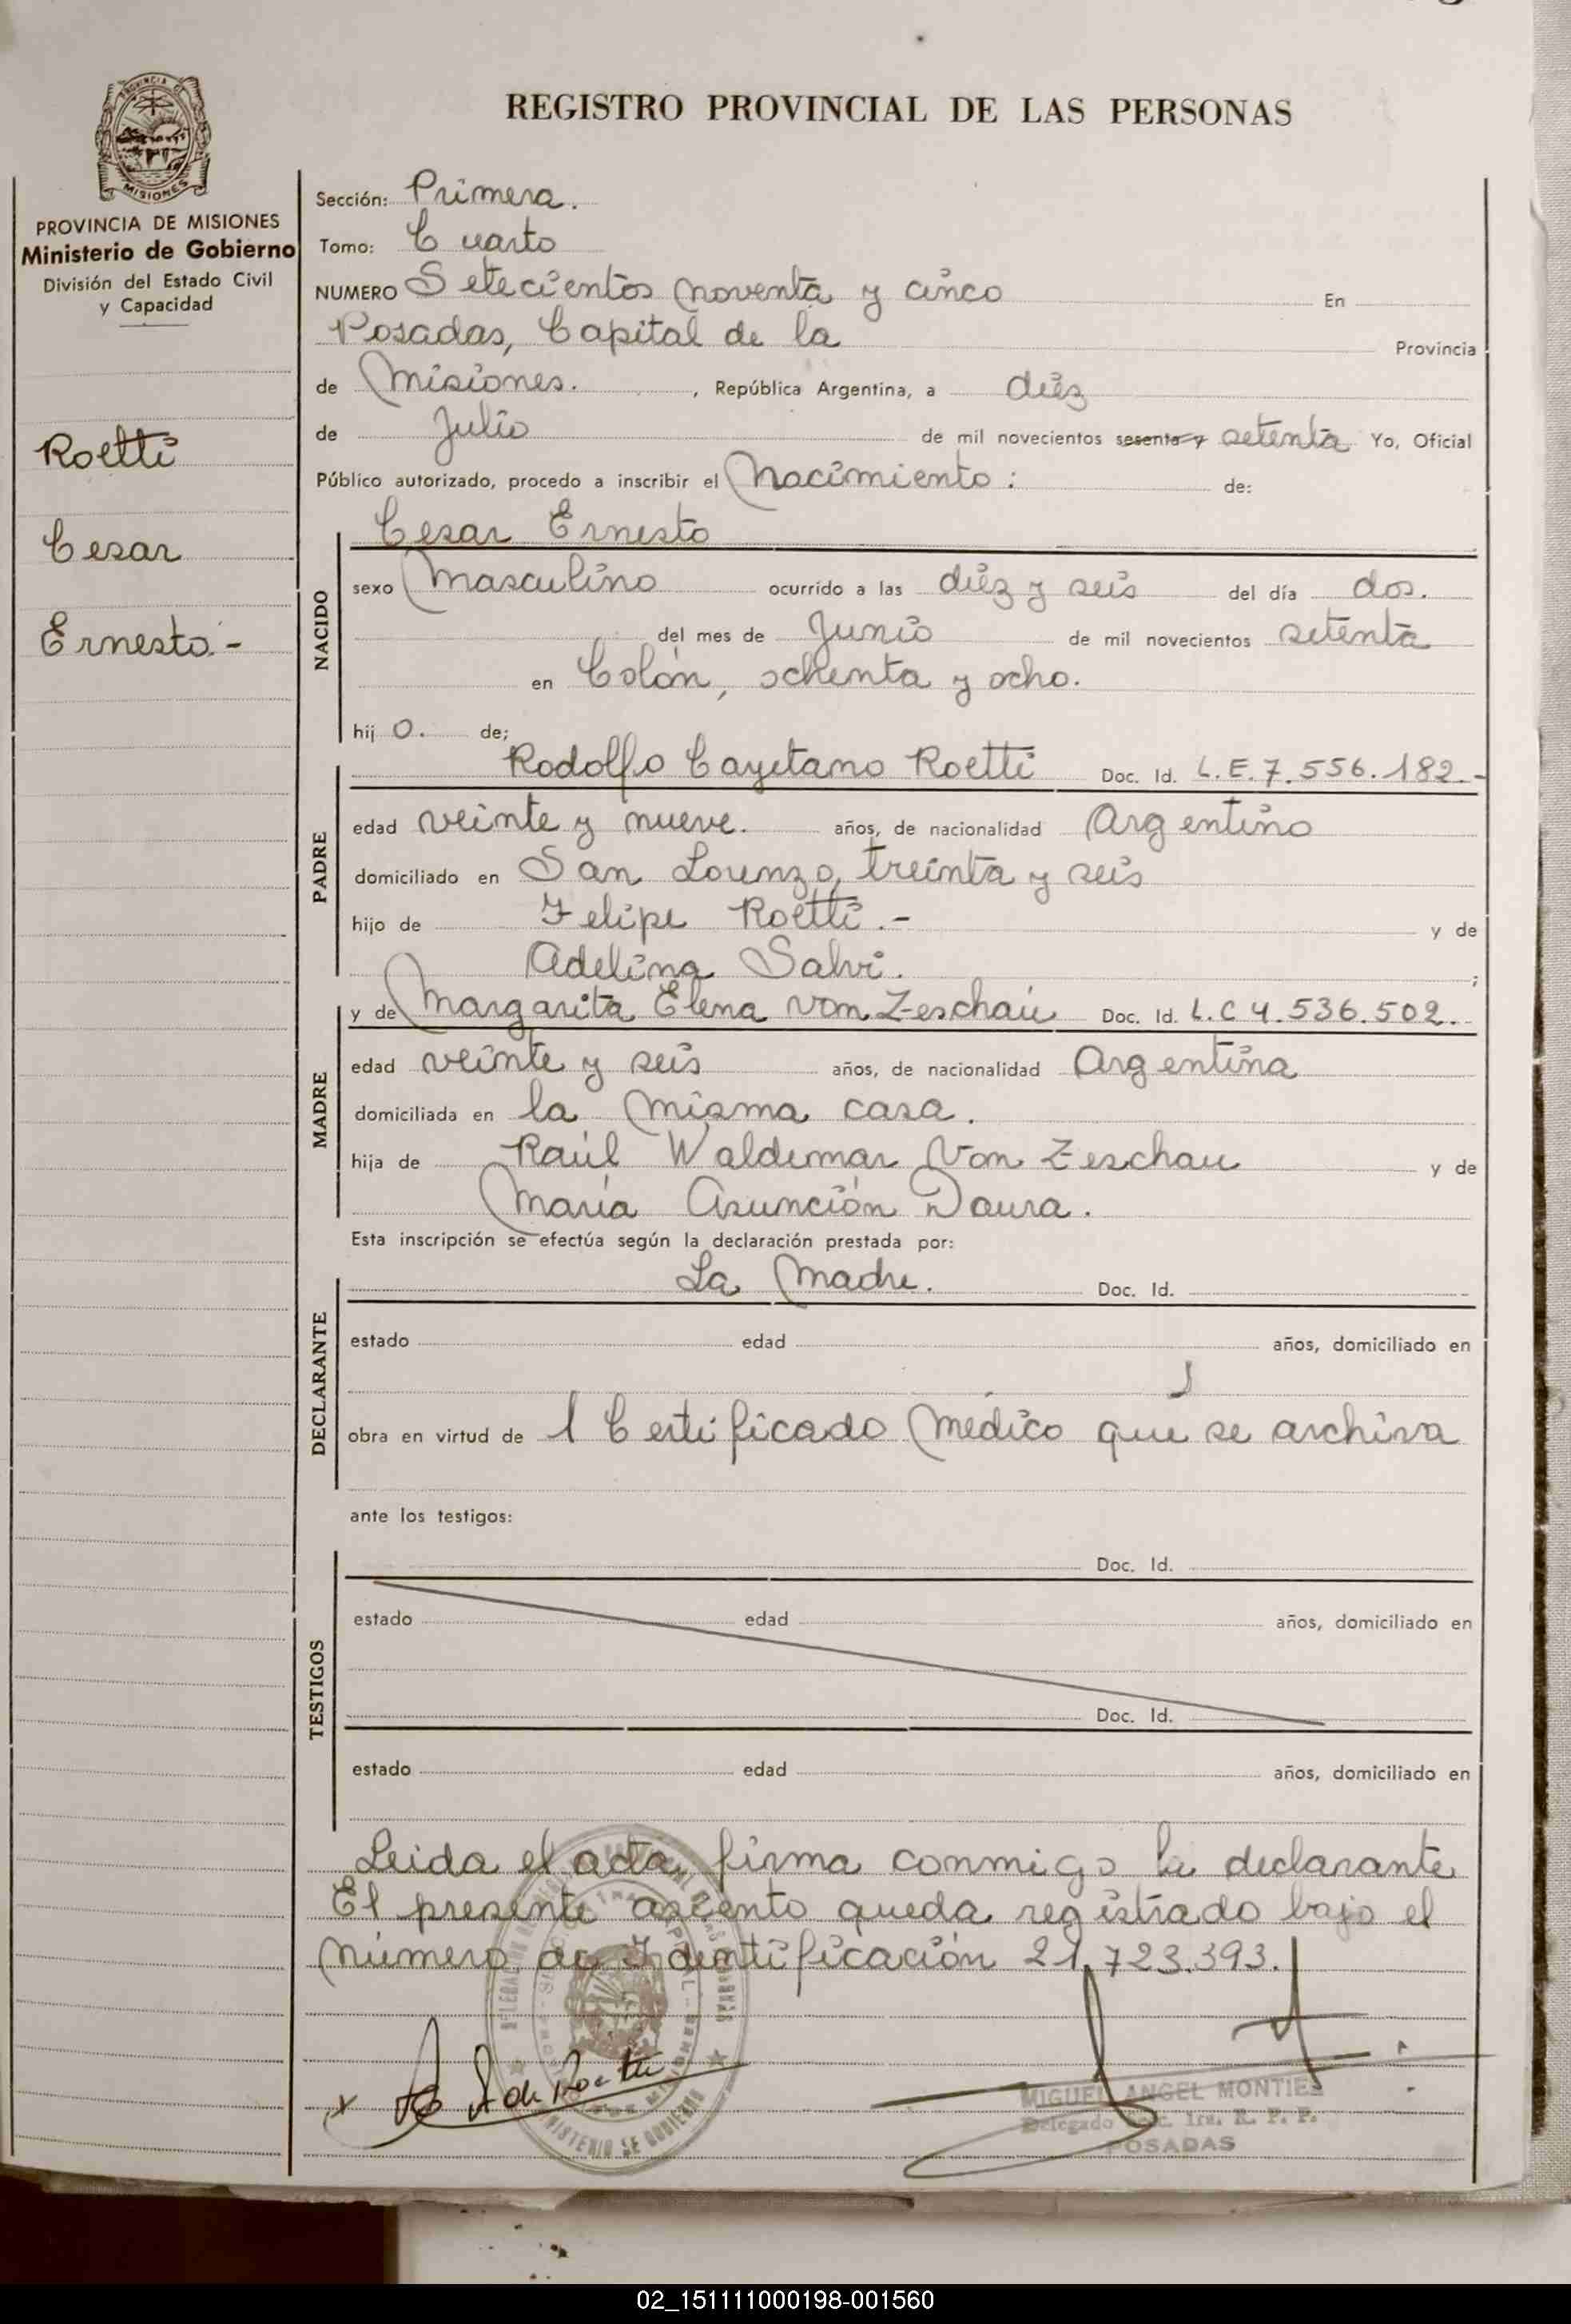 REGISTRO PROVINCIAL DE LAS PERSONAS
PROVINCIA DE MISIONES
Ministerio de Gobierno
División del Estado Civil
y Capacidad
Roetti
Cesar
Ernesto.-
Sección: Primera.
Tomo: Cuarto
NUMERO Setecientos noventa y cinco En
Posadas, Capital de la Provincia
de Misiones. , República Argentina, a diez
de Julio de mil novecientos sesenta y setenta Yo, Oficial
Público autorizado, procedo a inscribir el Nacimiento: de:
Cesar Ernesto
NACIDO
sexo Masculino ocurrido a las diez y seis del día dos.
del mes de Junio de mil novecientos setenta
en Colón, ochenta y ocho.
hij o. de;
Rodolfo Cayetano Roetti Doc. Id. L.E.7.556.182.-
PADRE
edad veinte y nueve. años, de nacionalidad Argentino
domiciliado en San Lorenzo, treinta y seis
hijo de Felipe Roetti.- y de
Adelina Salvi. ;
y de Margarita Elena von Zeschaú Doc. Id. L.C 4.536.502.-
MADRE
edad veinte y seis años, de nacionalidad Argentina
domiciliada en la misma casa.
hija de Raúl Waldemar Von Zeschau y de
María Asunción Daura.
Esta inscripción se efectúa según la declaración prestada por:
La Madre. Doc. Id.
DECLARANTE
estado edad años, domiciliado en
obra en virtud de 1 Certificado Médico que se archiva
ante los testigos:
Doc. Id.
TESTIGOS
estado edad años, domiciliado en
Doc. Id.
estado edad años, domiciliado en
Leida el acta, firma conmigo la declarante
El presente asiento queda registrado bajo el
número de Identificación 21.723.393.
de Roetti
MIGUEL ANGEL MONTIEL
Delegado Sec. 1ra. R. P. P.
POSADAS
02_151111000198-001560